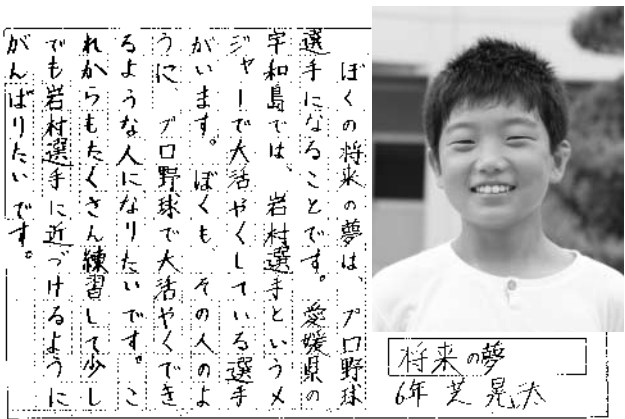 ぼくの将来の夢は、プロ野球
選手になることです。愛媛県の
宇和島では、岩村選手というメ
ジャーで大活やくしている選手
がいます。ぼくも、その人のよ
うに、プロ野球で大活やくでき
るような人になりたいです。こ
れからもたくさん練習して少し
でも岩村選手に近づけるように
がんばりたいです。
将来の夢
6年 芝 晃汰